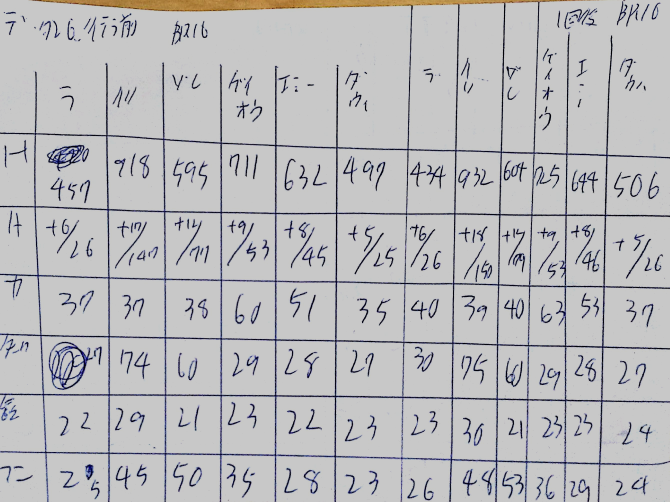 BR16 1回後 BR16
ラ クリ マレ ケイオウ エミー ダウィ ラ クリ マレ ケイオウ エミー ダウィ
H 457 918 595 711 632 497 434 932 604 725 644 506
+6/26 +17/147 +12/77 +9/53 +8/45 +5/25 +6/26 +18/150 +9/53 +8/46 +5/26
カ 37 37 38 60 51 35 40 39 40 63 53 37
27 74 60 29 28 27 30 75 60 29 28 27
22 29 21 23 22 23 23 30 21 23 23 24
25 45 50 35 28 23 26 48 53 36 29 24